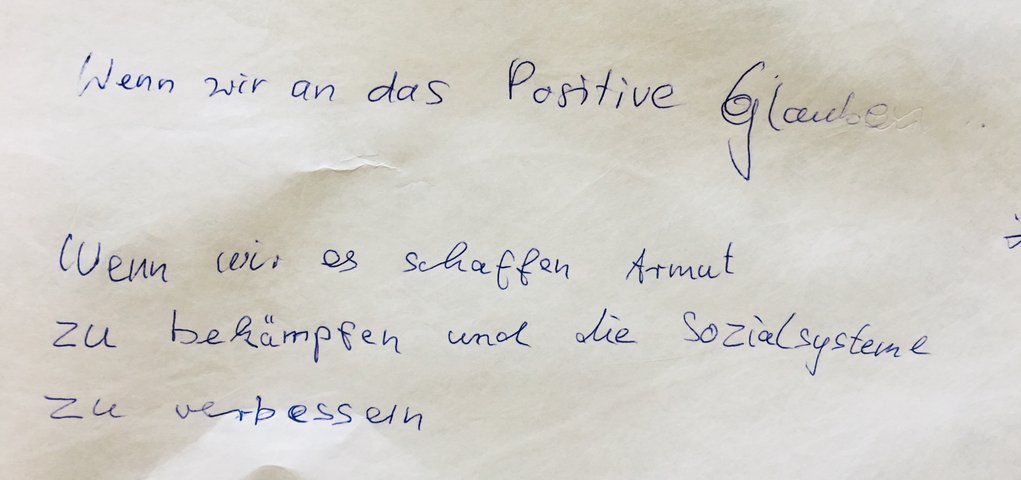 Wenn wir an das Positive Glauben
Wenn wir es schaffen Armut
zu bekämpfen und die Sozialsysteme
zu verbessern